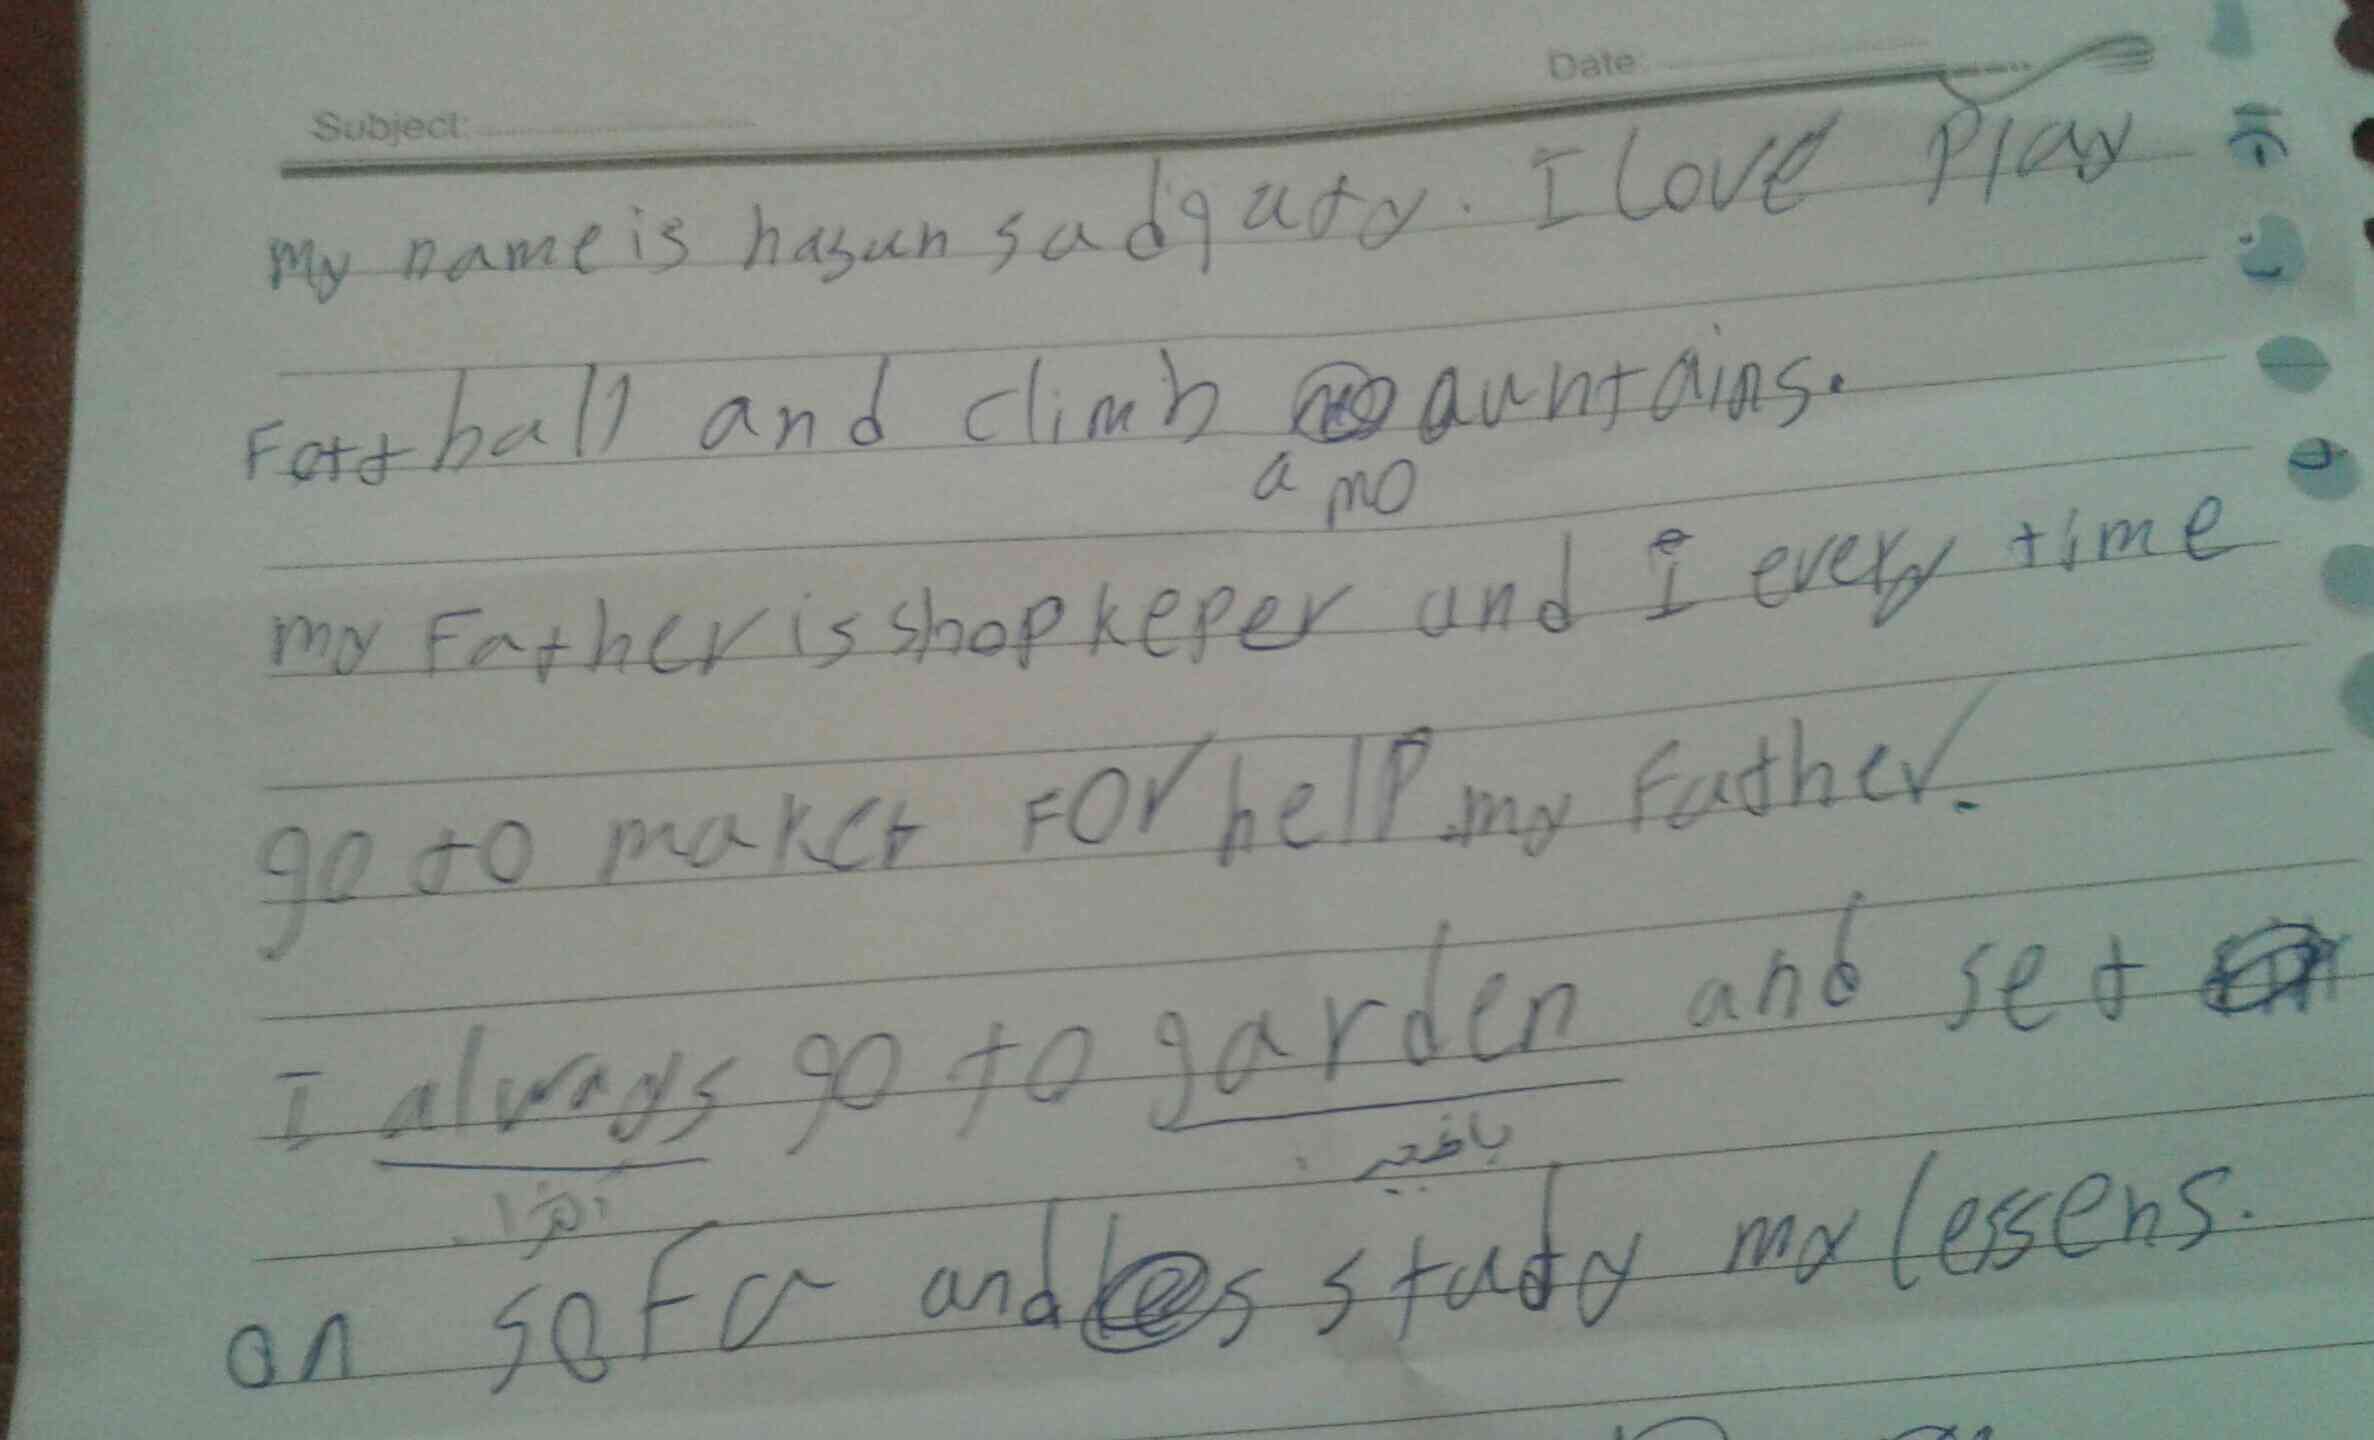 Date:
Subject:
my name is hasun sadgaty. I love play
Fottball and climb auntains.
a mo
my Father is shopkeper and I every time
go to maket For help my Father.
I always go to garden and set
باغچه
on sofa and study my lessens.